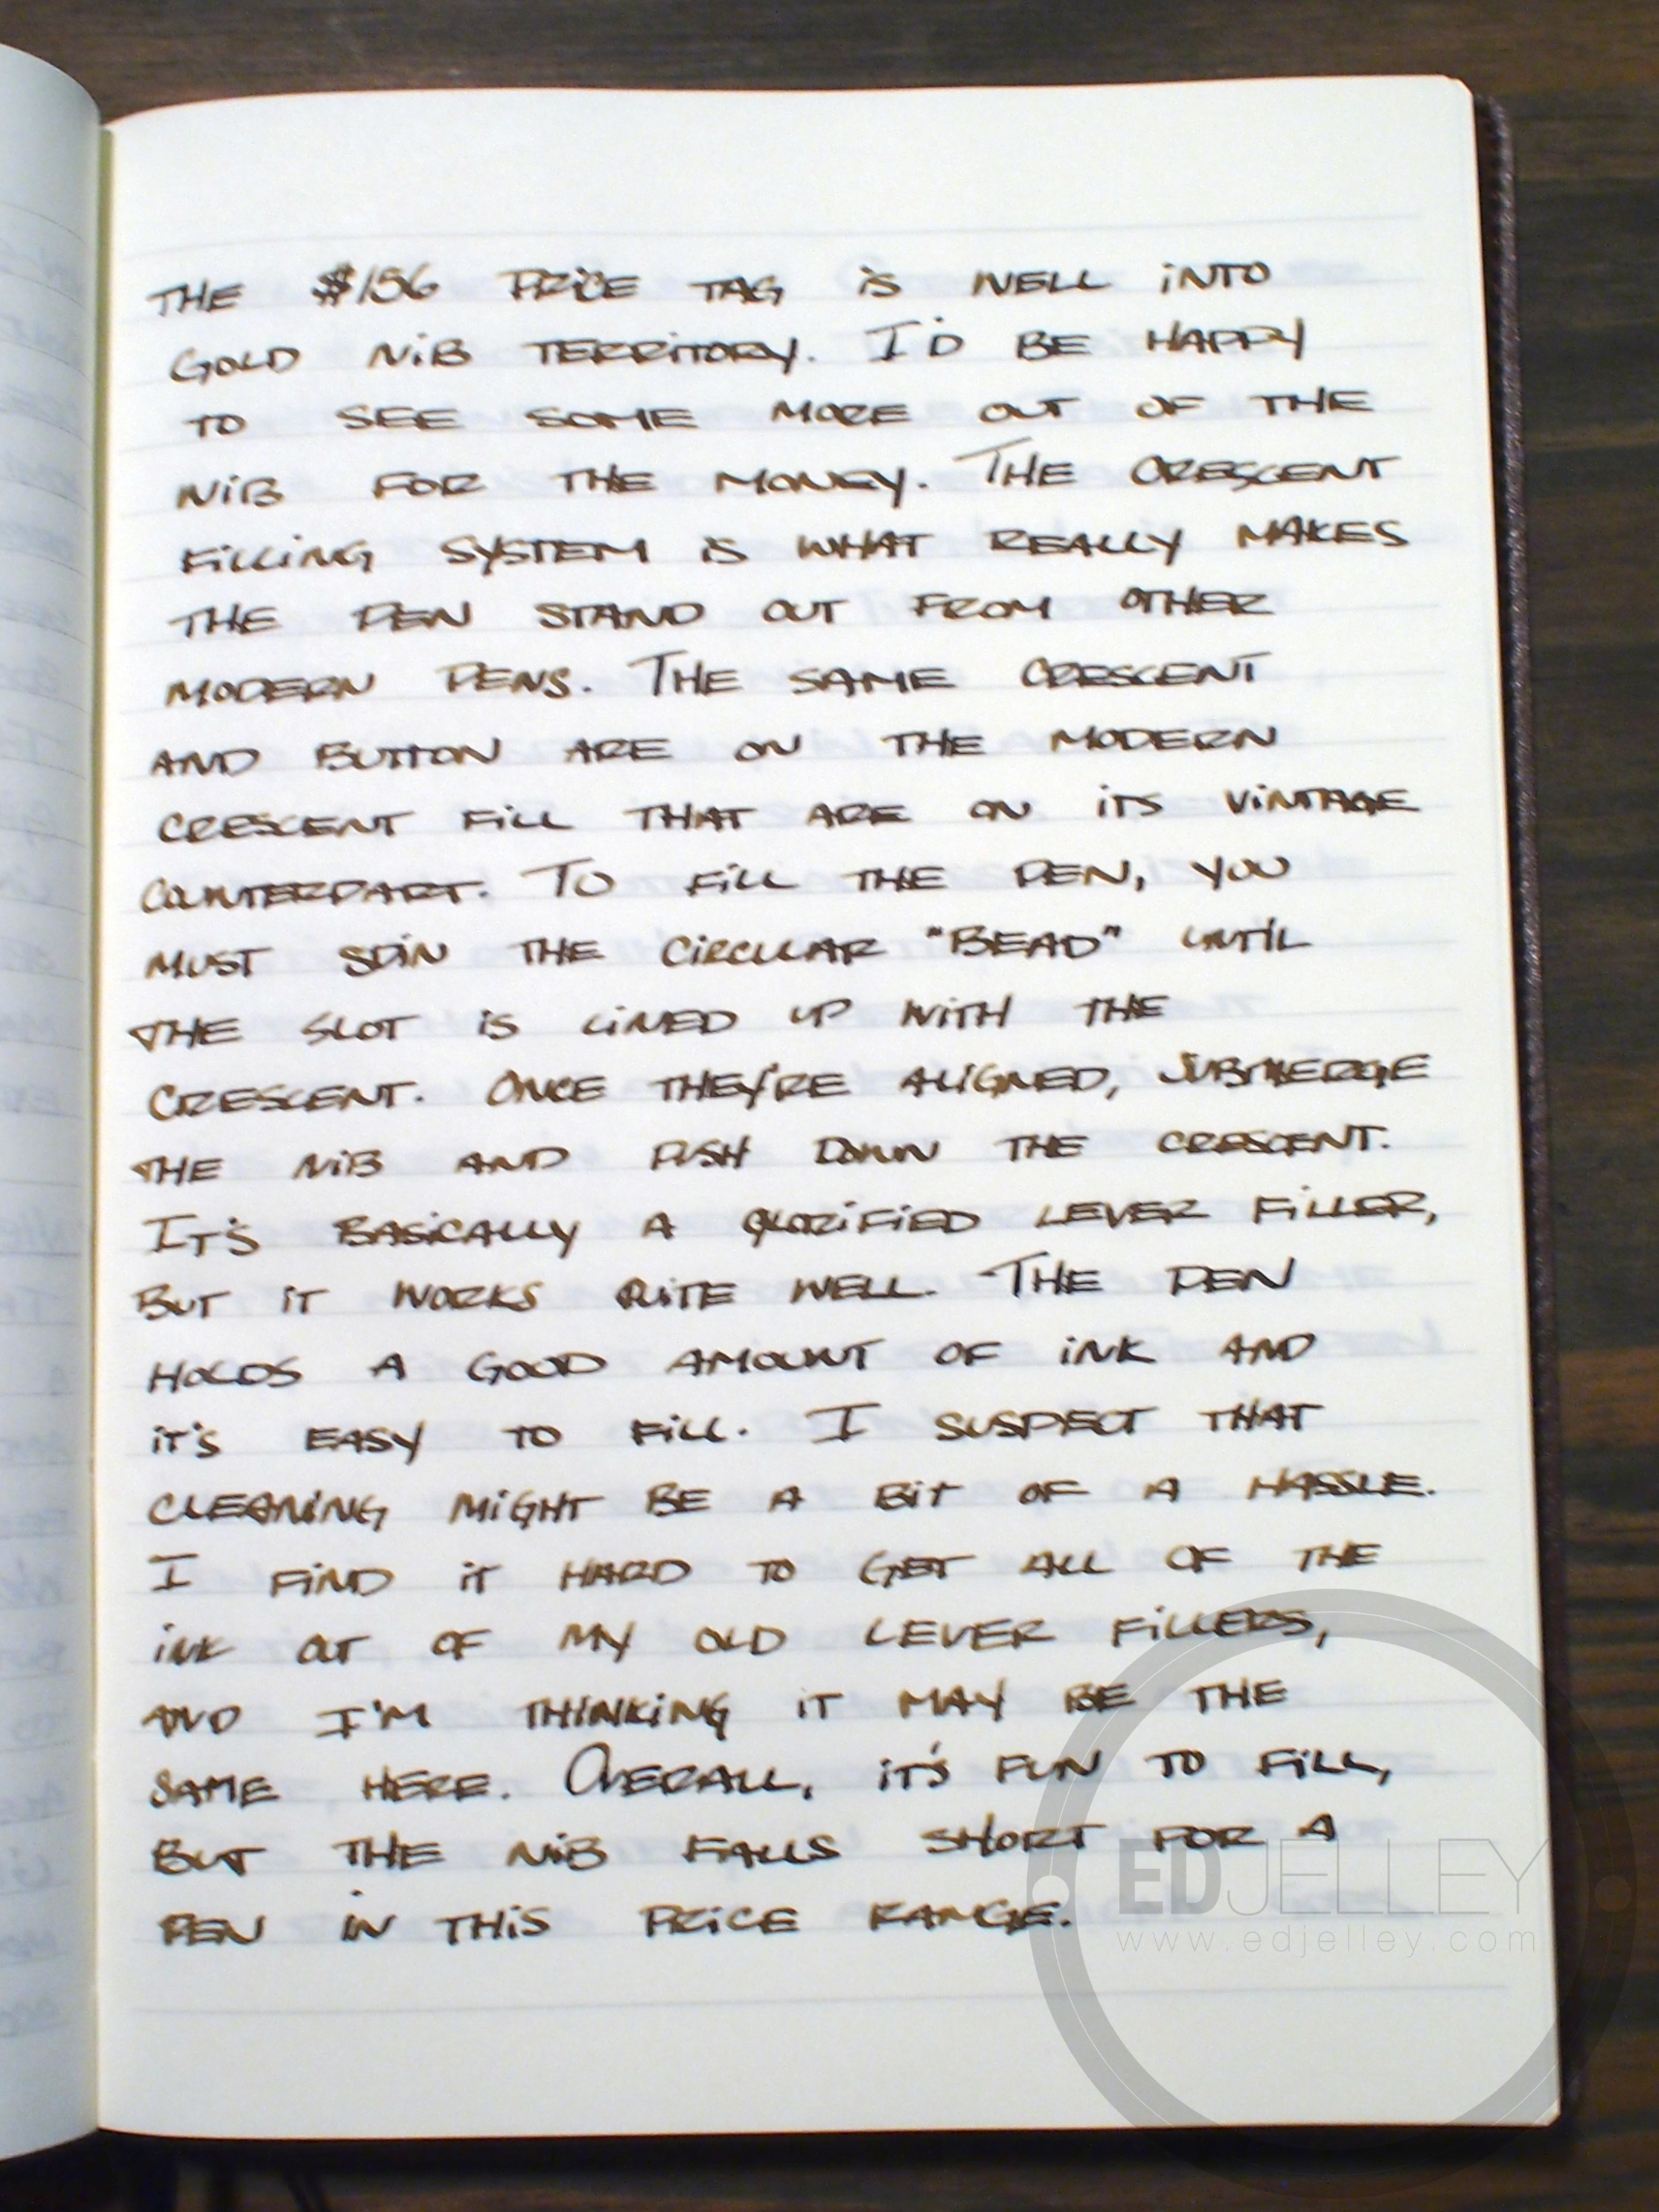 THE $156 PRICE TAG iS WELL iNTO
GOLD NiB TERRiTORY. I'D BE HAPPY
TO SEE SOME MORE OUT OF THE
NiB FOR THE MONEY. THE CRESCENT
FiLLiNG SYSTEM iS WHAT REALLY MAKES
THE PEN STAND OUT FROM OTHER
MODERN PENS. THE SAME CRESCENT
AND BUTTON ARE ON THE MODERN
CRESCENT FiLL THAT ARE ON iTS ViNTAGE
COUNTERPART. TO FiLL THE PEN, YOU
MUST SPiN THE CiRCULAR "BEAD" UNTiL
THE SLOT iS LiNED UP WiTH THE
CRESCENT. ONCE THEY'RE ALiGNED, SUBMERGE
THE NiB AND PUSH DOWN THE CRESCENT.
IT'S BASiCALLY A GLORiFiED LEVER FiLLER,
BUT iT WORKS QUiTE WELL. THE PEN
HOLDS A GOOD AMOUNT OF iNK AND
iT'S EASY TO FiLL. I SUSPECT THAT
CLEANiNG MiGHT BE A BiT OF A HASSLE.
I FiND iT HARD TO GET ALL OF THE
iNK OUT OF MY OLD LEVER FiLLERS,
AND I'M THiNKiNG iT MAY BE THE
SAME HERE. OVERALL, iT'S FUN TO FiLL,
BUT THE NiB FALLS SHORT FOR A
PEN iN THiS PRiCE RANGE.
EDJELLEY
www.edjelley.com